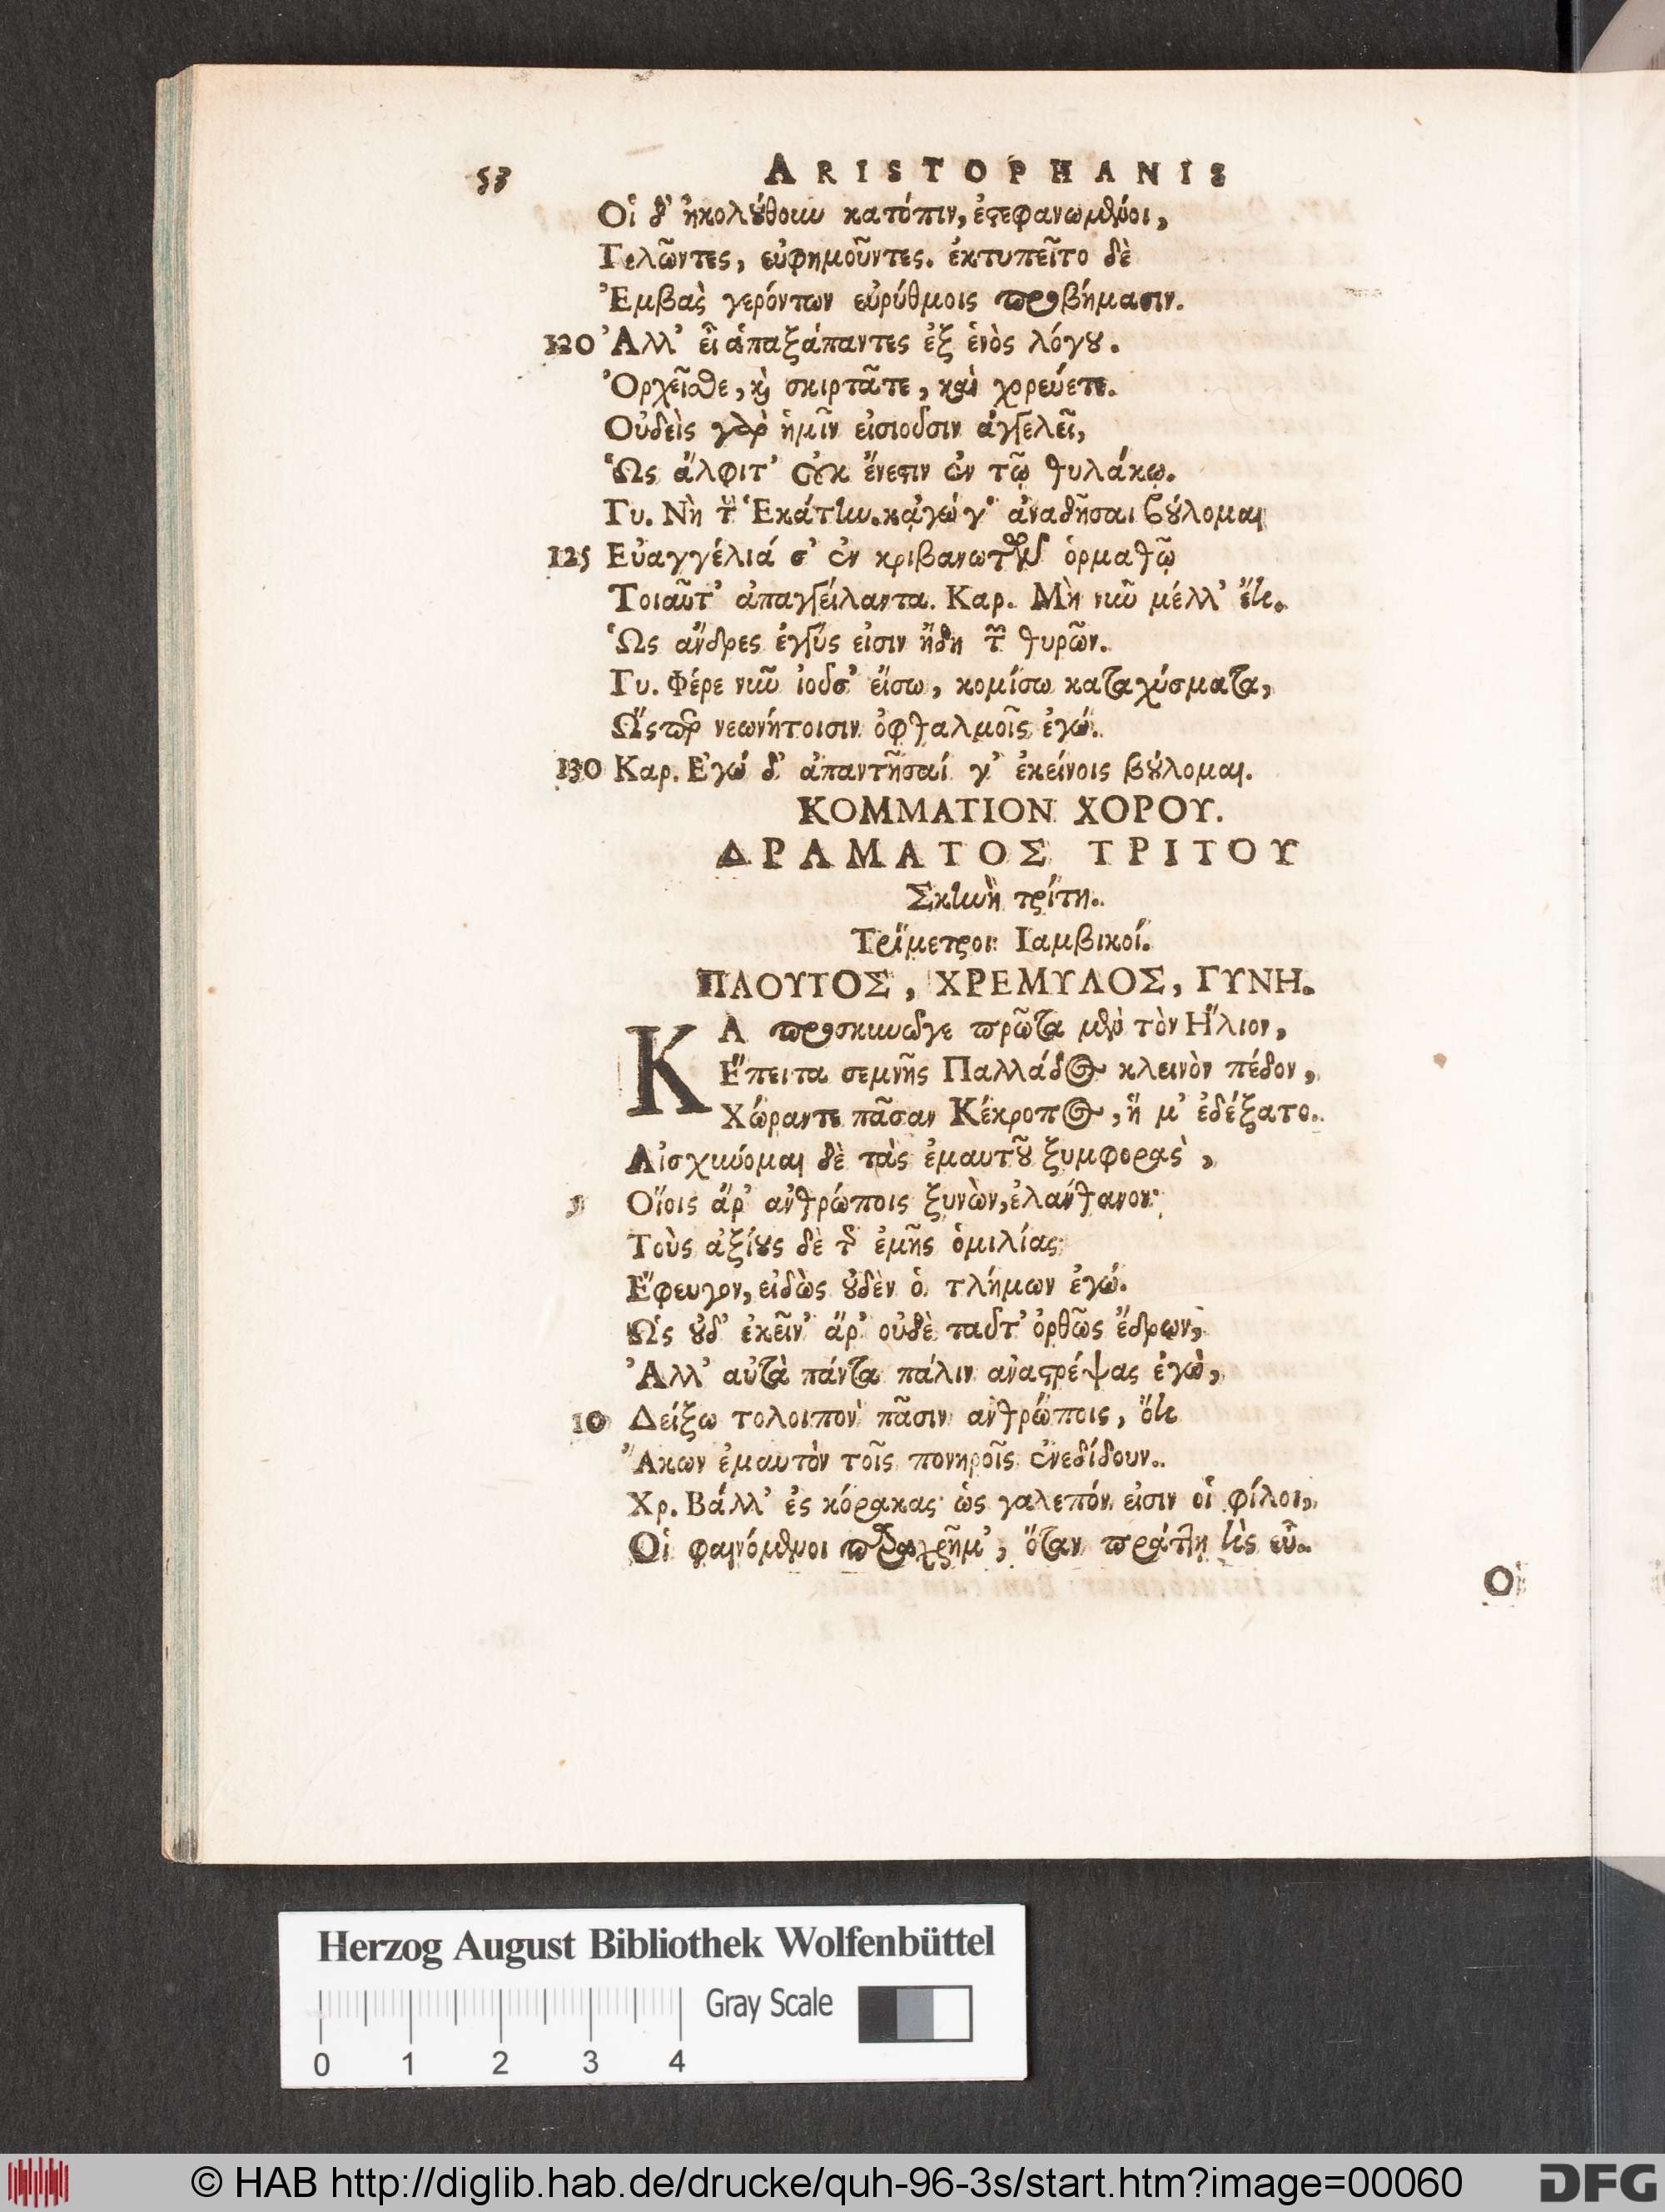 53 ARISTOPHANIS
Οἱ δ' ἠκολούθουν κατόπιν, ἐστεφανωμένοι,
Γελῶντες, εὐφημοῦντες. ἐκτυπεῖτο δὲ
Ἐμβὰς γερόντων εὐρύθμοις προβήμασιν.
120 Ἀλλ' εἶ ἁπαξάπαντες ἐξ ἑνὸς λόγου.
Ὀρχεῖσθε, καὶ σκιρτᾶτε, καὶ χορεύετε.
Οὐδεὶς γὰρ ἡμῖν εἰσιοῦσιν ἀγγελεῖ,
Ὡς ἄλφιτ' οὐκ ἔνεστιν ἐν τῷ θυλάκῳ.
Γυ. Νὴ τὴν Ἑκάτην. κᾀγώ γ' ἀναδῆσαι βούλομαι
125 Εὐαγγέλιά σ' ἐν κριβανωτῶν ὁρμαθῷ
Τοιαῦτ' ἀπαγγείλαντα. Καρ. Μὴ νῦν μέλλ' ἔτι.
Ὡς ἄνδρες ἐγγύς εἰσιν ἤδη τῶν θυρῶν.
Γυ. Φέρε νῦν ἰοῦσ' εἴσω, κομίσω καταχύσματα,
Ὥσπερ νεωνήτοισιν ὀφθαλμοῖς ἐγώ.
130 Καρ. Ἐγώ δ' ἀπαντῆσαί γ' ἐκείνοις βούλομαι.
ΚΟΜΜΑΤΙΟΝ ΧΟΡΟΥ.
ΔΡΑΜΑΤΟΣ ΤΡΙΤΟΥ
Σκηνὴ τρίτη.
Τρίμετροι Ιαμβικοί.
ΠΛΟΥΤΟΣ, ΧΡΕΜΥΛΟΣ, ΓΥΝΗ.
ΚΑ προσκυνῶγε πρῶτα μὲν τὸν Ἥλιον,
Ἔπειτα σεμνῆς Παλλάδος κλεινὸν πέδον,
Χώραντε πᾶσαν Κέκροπος, ἥ μ' ἐδέξατο.
Αἰσχύνομαι δὲ τὰς ἐμαυτοῦ ξυμφορὰς,
5 Οἵοις ἄρ' ἀνθρώποις ξυνὼν, ἐλάνθανον·
Τοὺς ἀξίους δὲ τῆς ἐμῆς ὁμιλίας
Ἔφευγον, εἰδὼς οὐδὲν ὁ τλήμων ἐγώ.
Ὡς οὐδ' ἐκεῖν' ἄρ' οὐδὲ ταῦτ' ὀρθῶς ἔδρων,
Ἀλλ' αὐτὰ πάντα πάλιν ἀναστρέψας ἐγὼ,
10 Δείξω τολοιπὸν πᾶσιν ἀνθρώποις, ὅτι
Ἄκων ἐμαυτὸν τοῖς πονηροῖς ἐνεδίδουν.
Χρ. Βάλλ' ἐς κόρακας· ὡς χαλεπόν εἰσιν οἱ φίλοι,
Οἱ φαινόμενοι παραχρῆμ', ὅταν πράττῃ τὶς εὖ.
Οἱ
Herzog August Bibliothek Wolfenbüttel
Gray Scale
0 1 2 3 4
© HAB http://diglib.hab.de/drucke/quh-96-3s/start.htm?image=00060
DFG